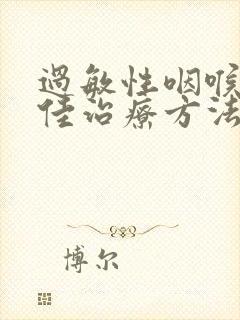 过敏性咽喉
佳治疗方法
博尔